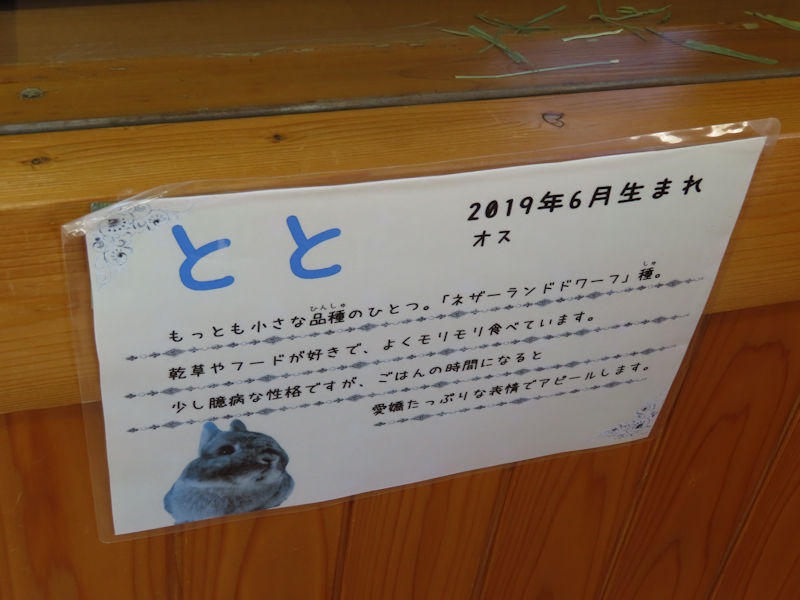 とと
2019年6月生まれ
オス
もっとも小さな品種のひとつ。「ネザーランドドワーフ」種。
乾草やフードが好きで、よくモリモリ食べています。
少し臆病な性格ですが、ごはんの時間になると
愛嬌たっぷりな表情でアピールします。